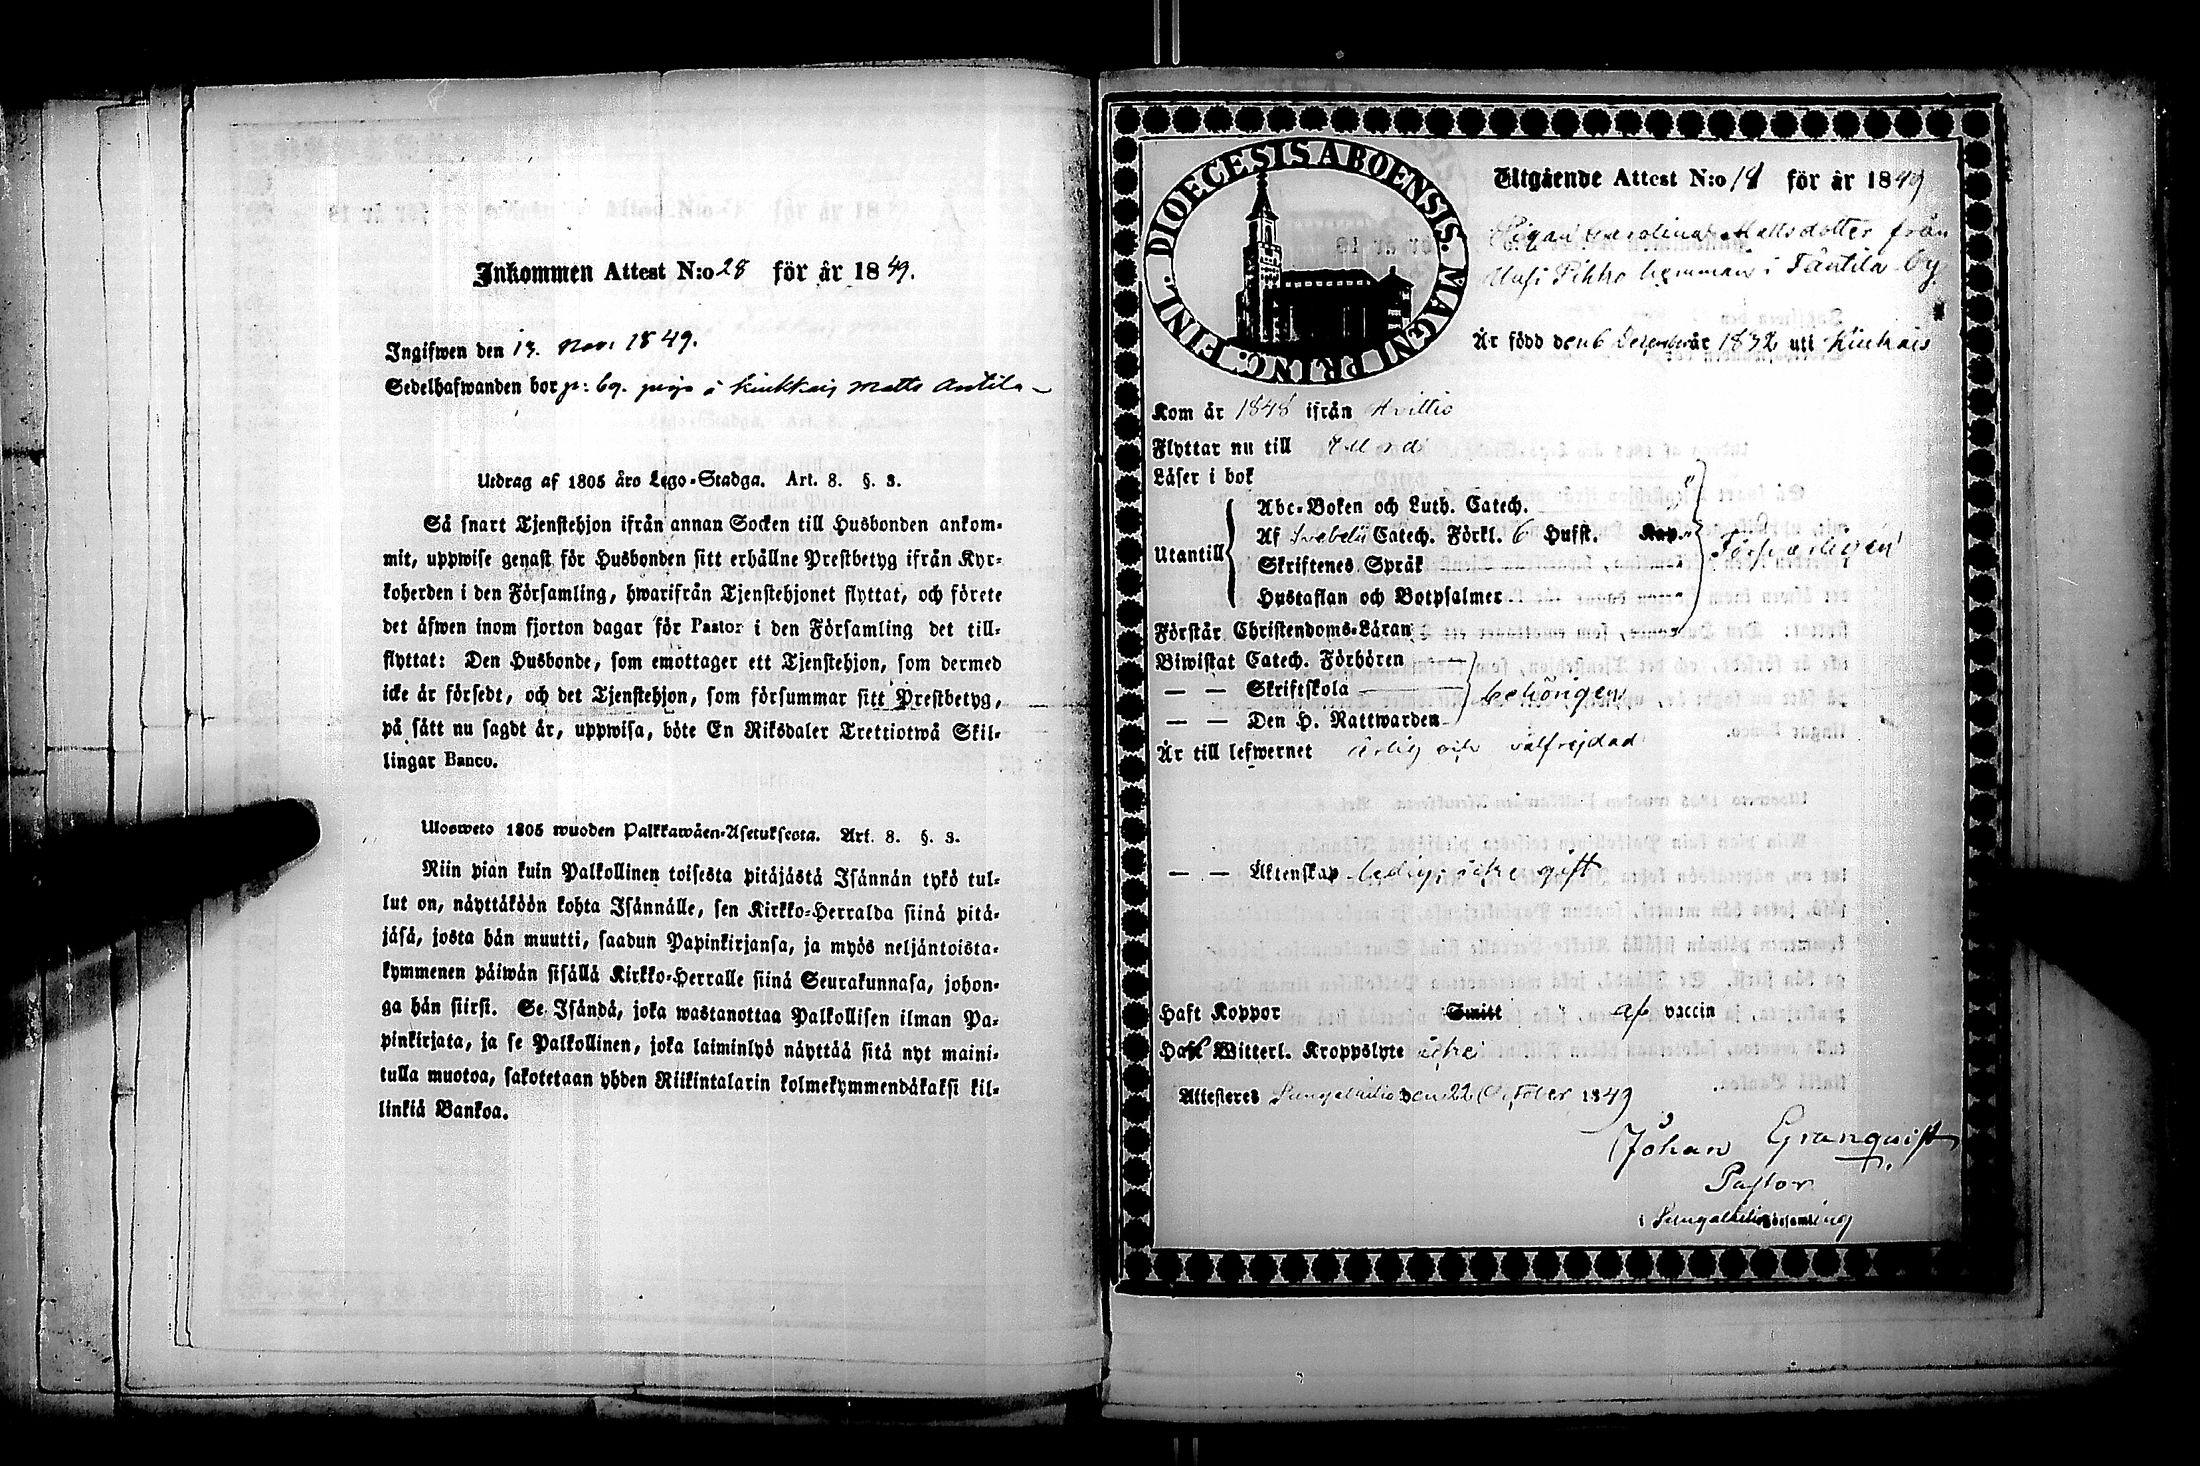 Inkommen Attest N:o 28 för år 1849.
Ingifwen den 13. Nov. 1849.
Sedelhafwanden bor p: 69. piga i Kiukkais Matts Antila
Utdrag af 1805 års Lego-Stadga. Art. 8. §. 3.
Så snart Tjenstehjon ifrån annan Socken till Husbonden ankom-
mit, uppwise genast för Husbonden sitt erhållne Prestbetyg ifrån Kyr-
koherden i den Församling, hwarifrån Tjenstehjonet flyttat, och förete
det äfwen inom fjorton dagar för Pastor i den Församling det till-
flyttat: Den Husbonde, som emottager ett Tjenstehjon, som dermed
icke är försedt, och det Tjenstehjon, som försummar sitt Prestbetyg,
på sätt nu sagdt är, uppwisa, böte En Riksdaler Trettiotwå Skil-
lingar Banco.
Ulosweto 1805 wuoden Palkkawäen-Asetuksesta. Art. 8. §. 3.
Niin pian kuin Palkollinen toisesta pitäjästä Isännän tykö tul-
lut on, näyttäköön kohta Isännälle, sen Kirkko-Herralda siinä pitä-
jäsä, josta hän muutti, saadun Papinkirjansa, ja myös neljäntoista-
kymmenen päiwän sisällä Kirkko-Herralle siinä Seurakunnasa, johon-
ga hän siirsi. Se Isändä, joka wastanottaa Palkollisen ilman Pa-
pinkirjata, ja se Palkollinen, joka laiminlyö näyttää sitä nyt maini-
tulla muotoa, sakotetaan yhden Riikintalarin kolmekymmendäkaksi kil-
linkiä Bankoa.
DIOECESIS ABOENSIS. MAGNI PRINC. FINL.
Utgående Attest N:o 18 för år 1849
Pigan Carolina Mattsdotter från
Pihko hemman i Tåutila by
Är född den 6 December år 1832 uti Kiukais
Kom år 1848 ifrån Hvittis
Flyttar nu till
Läser i bok
Utantill
Abc-Boken och Luth. Catech.
Af Svebelii Catech. Förkl. 6 Hufst. Kap.
Skriftenes Språk
Hustaflan och Botpsalmer
Förstår Christendoms-Läran
Försvarligen
Biwistat Catech. Förhören
— — Skriftskola
— — Den H. Nattwarden
behörigen
Är till lefwernet ärlig och välfrejdad
— — Äktenskap ledig, icke gift
Haft Koppor Smitt af vaccin
Haft Witterl. Kroppslyte icke
Attesteres Sungalhitio den 22 October 1849
Johan Granqvist
Pastor
i Sungalhitio Församling